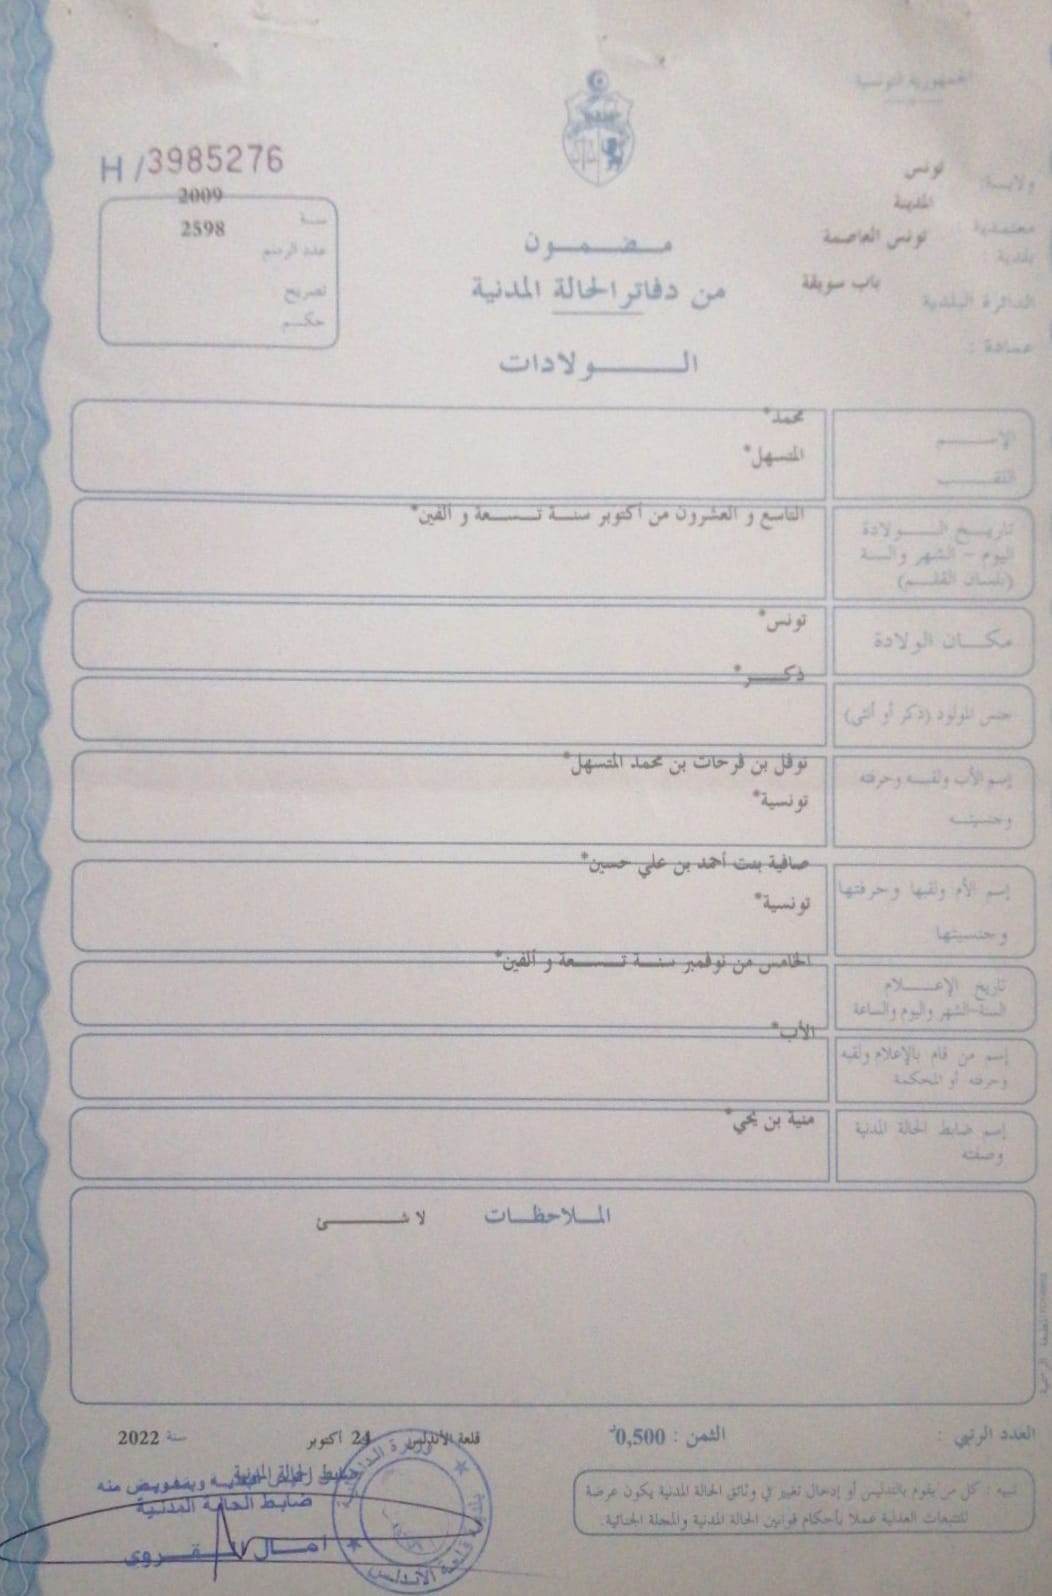 الجمهورية التونسية
H /3985276
ولايـة: تونس
معتمدية المدينة
بلدية : تونس العاصمة
الدائرة البلدية باب سويقة
عمادة :
2009 سنة
2598 عدد الرسم
تصريح
حكـم
مـضـمـون
من دفاتر الحالة المدنية
الـولادات
الإسـم محمد*
اللقـب المتسهل*
تاريـخ الـولادة التاسع و العشرون من أكتوبر سنـة تـسـعة و ألفين*
اليوم – الشهر والسنة
(بلسان القلـم)
مكـان الولادة تونس*
جنس المولود (ذكر أو أنثى) ذكـر*
إسم الأب ولقبـه وحرفته نوفل بن فرحات بن محمد المتسهل*
وجنسيتـه تونسية*
إسم الأم ولقبها وحرفتها صافية بنت أحمد بن علي حسين*
وجنسيتها تونسية*
تاريخ الإعـلام الخامس من نوفمبر سنـة تـسـعة و ألفين*
السنة–الشهر واليوم والساعة
إسم من قام بالإعلام ولقبه الأب*
وحرفته أو المحكمة
إسم ضابط الحالة المدنية منية بن يحي*
وصفته
المـلاحظـات لا شـئ
العدد الرتبي :
الثمن : 0,500د
قلعة الأندلس 24 أكتوبر سنة 2022
تنبيه : كل من يقوم بالتدليس أو إدخال تغيير في وثائق الحالة المدنية يكون عرضة
للتتبعات العدلية عملا بأحكام قوانين الحالة المدنية والمجلة الجنائية.
ضابط الحالة المدنية
وبتفويض منه
ضابط الحالة المدنية
امـال القـروي
وزارة الداخلية
بلدية قلعة الأندلس